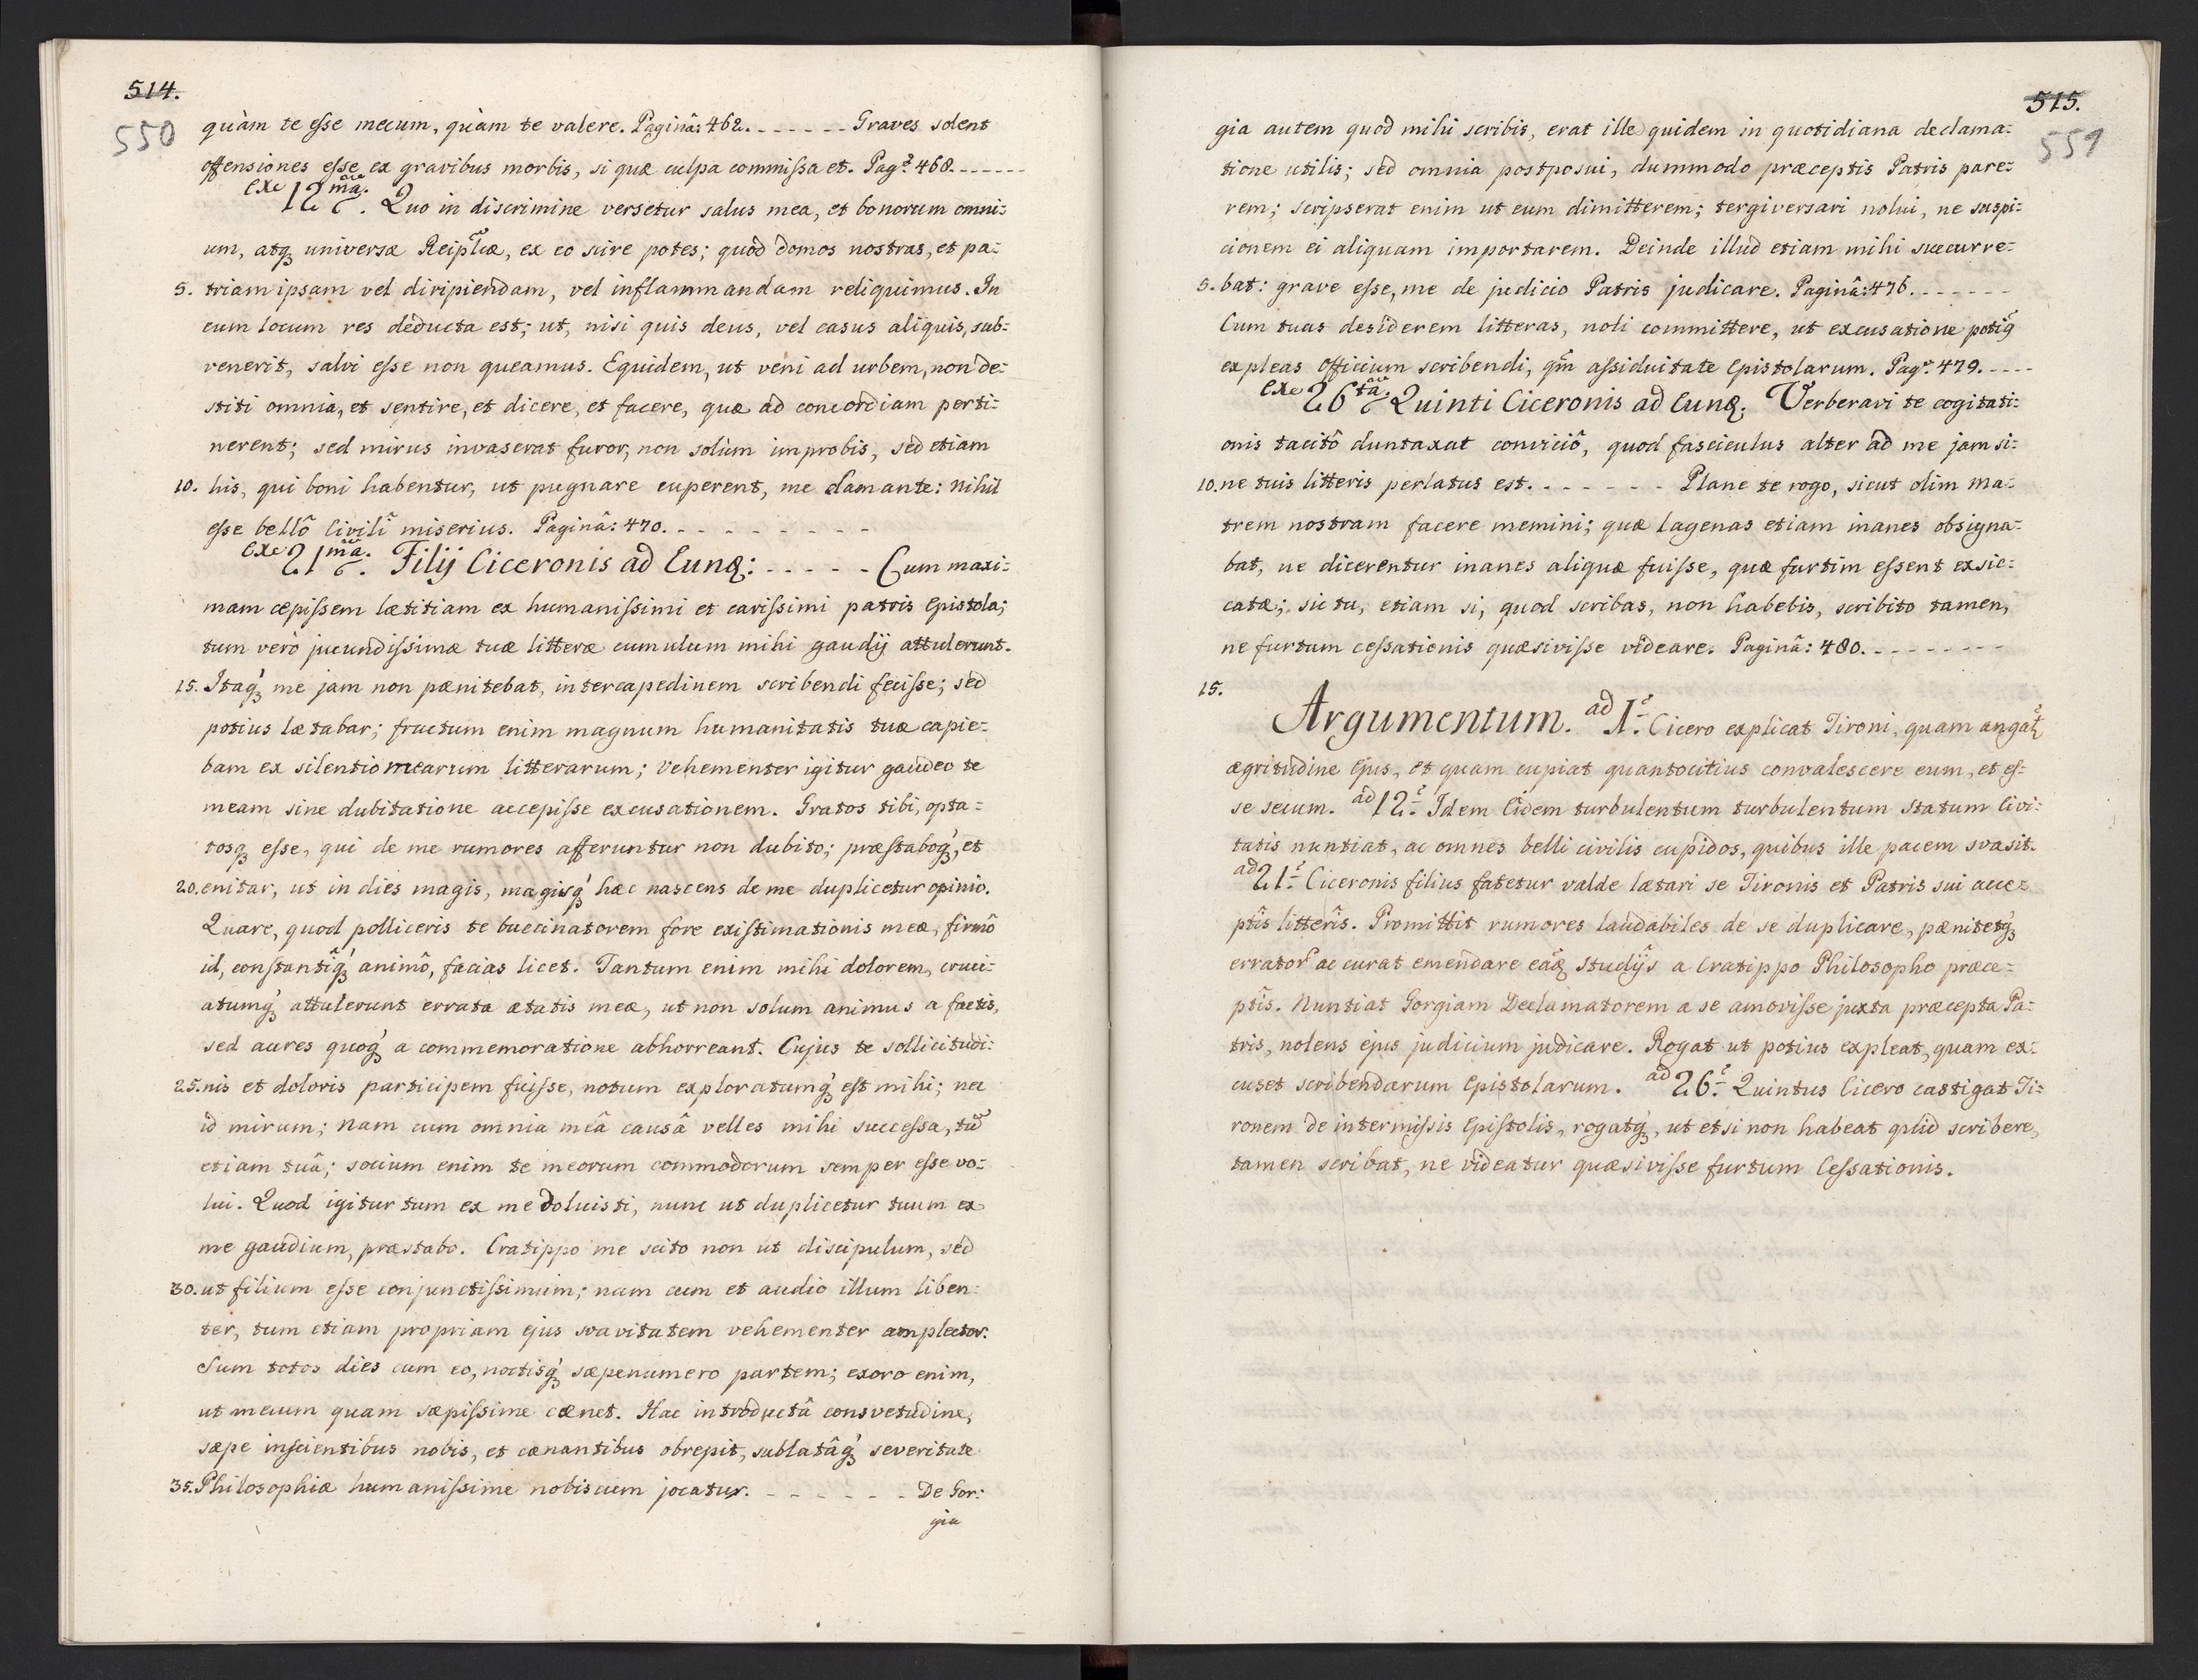 514.
550
quàm te eſse mecum, quàm te valere. Paginâ: 462. - - - - - - - Graves solent
offensiones eſse ex gravibus morbis, si quæ culpa commiſsa et. Pag: 468. - - - - - -
exe 12 mâ. Quo in discrimine versetur salus mea, et bonorum omni:
um, atqꝫ universæ Reiplcæ, ex eo scire potes; quòd domos nostras, et pa:
5. triam ipsam vel diripiendam, vel inflammandam reliquimus. In
eum locum res deducta est; ut, nisi quis deus, vel casus aliquis, sub:
venerit, salvi eſse non queamus. Equidem, ut veni ad urbem, non de:
stiti omnia, et sentire, et dicere, et facere, quæ ad concordiam perti:
nerent; sed mirus invaserat furor, non solùm improbis, sed etiam
10. his, qui boni habentur, ut pugnare cuperent, me clamante: nihil
eſse bellô Civilî miserius. Paginâ: 470. - - - - - - - - -
exe 21 mâ. Filij Ciceronis ad Eunꝗ: - - - - - Cum maxi:
mam cæpiſsem lætitiam ex humaniſsimi et cariſsimi patris Epistola;
tum verò jucundiſsimæ tuæ litteræ cumulum mihi gaudij attulerunt.
15. Itaqꝫ́ me jam non pænitebat, intercapedinem scribendi feciſse; sed
potius lætabar; fructum enim magnum humanitatis tuæ capie:
bam ex silentio mearum litterarum; Vehementer igitur gaudeo te
meam sine dubitatione accepiſse excusationem. Gratos tibi, opta =
tosqꝫ eſse, qui de me rumores afferuntur non dubito; præſtaboqꝫ́, et
20. enitar, ut in dies magis, magisqꝫ́ hæc nascens de me duplicetur opinio.
Quare, quod polliceris te buccinatorem fore exiſtimationis meæ, firmô
id, conſtantîqꝫ́ animô, facias licet. Tantum enim mihi dolorem, cruci:
atumqꝫ́ attulerunt errata ætatis meæ, ut non solum animus a factis,
sed aures quoqꝫ́ a commemoratione abhorreant. Cujus te sollicitudi:
25. nis et doloris participem fuiſse, notum exploratumqꝫ́ eſt mihi; nec
id mirum; nam cum omnia meâ causâ velles mihi succeſsa, tũ
etiam tuâ; socium enim te meorum commodorum semper eſse vo:
lui. Quod igitur tum ex me doluisti, nunc ut duplicetur tuum ex
me gaudium, præstabo. Cratippo me scito non ut discipulum, sed
30. ut filium eſse conjunctiſsimum; nam cum et audio illum liben:
ter, tum etiam propriam ejus svavitatem vehementer amplector.
Sum totos dies cum eo, noctisqꝫ́ sæpenumero partem; exoro enim,
ut mecum quam sæpiſsime cænet. Hac introductâ consvetudine,
sæpe inſcientibus nobis, et cænantibus obrepit, sublatâqꝫ́ severitate
35. Philosophiæ humaniſsime nobiscum jocatur. - - - - - - - De Gor:
gia
515.
551
gia autem quod mihi scribis, erat ille quidem in quotidiana declama:
tione utilis; sed omnia postposui, dummodo præceptis Patris pare:
rem; scripserat enim ut eum dimitterem; tergiversari nolui, ne suspi:
cionem ei aliquam importarem. Deinde illud etiam mihi succurre:
5. bat: grave eſse, me de judicio Patris judicare. Paginâ: 476. - - - - - -
Cum tuas desiderem litteras, noli committere, ut excusatione potiꝰ
expleas officium scribendi, qm̃ aſsiduitate Epistolarum. Pag: 479. - - - -
exe 26 tâ. Quinti Ciceronis ad Eunꝗ. Verberavi te cogitati:
onis tacitô duntaxat conviciô, quod fasciculus alter ad me jam si:
10. ne tuis litteris perlatus est. - - - - - - - Plane te rogo, sicut olim ma:
trem nostram facere memini; quæ lagenas etiam inanes obsigna:
bat, ne dicerentur inanes aliquæ fuiſse, quæ furtim eſsent exsic:
catæ; sic tu, etiam si, quod scribas, non habebis, scribito tamen,
ne furtum ceſsationis quæsiviſse videare. Paginâ: 480. - - - - - - - -
15.
Argumentum. ad 1: Cicero explicat Tironi, quam angat̃
ægritudine ejus, et quam cupiat quantocitius convalescere eum, et eſ:
se secum. ad 12: Idem Eidem turbulentum turbulentum statum Civi:
tatis nuntiat, ac omnes belli civilis cupidos, quibus ille pacem svasit.
ad 21: Ciceronis filius fatetur valde lætari se Tironis et Patris sui acce:
ptîs litterîs. Promittit rumores laudabiles de se duplicare, pænitetqꝫ́
errator̃ ac curat emendare eaꝗ̃ studijs a Cratippo Philosopho præce:
ptîs. Nuntiat Gorgiam Declamatorem a se amoviſse juxta præcepta Pa:
tris, nolens ejus judicium judicare. Rogat ut potius expleat, quam ex:
cuset scribendarum Epistolarum. ad 26: Quintus Cicero castigat Ti:
ronem de intermiſsis Epiſtolis, rogatqꝫ́, ut etsi non habeat quid scribere,
tamen scribat, ne videatur quæsiviſse furtum Ceſsationis.